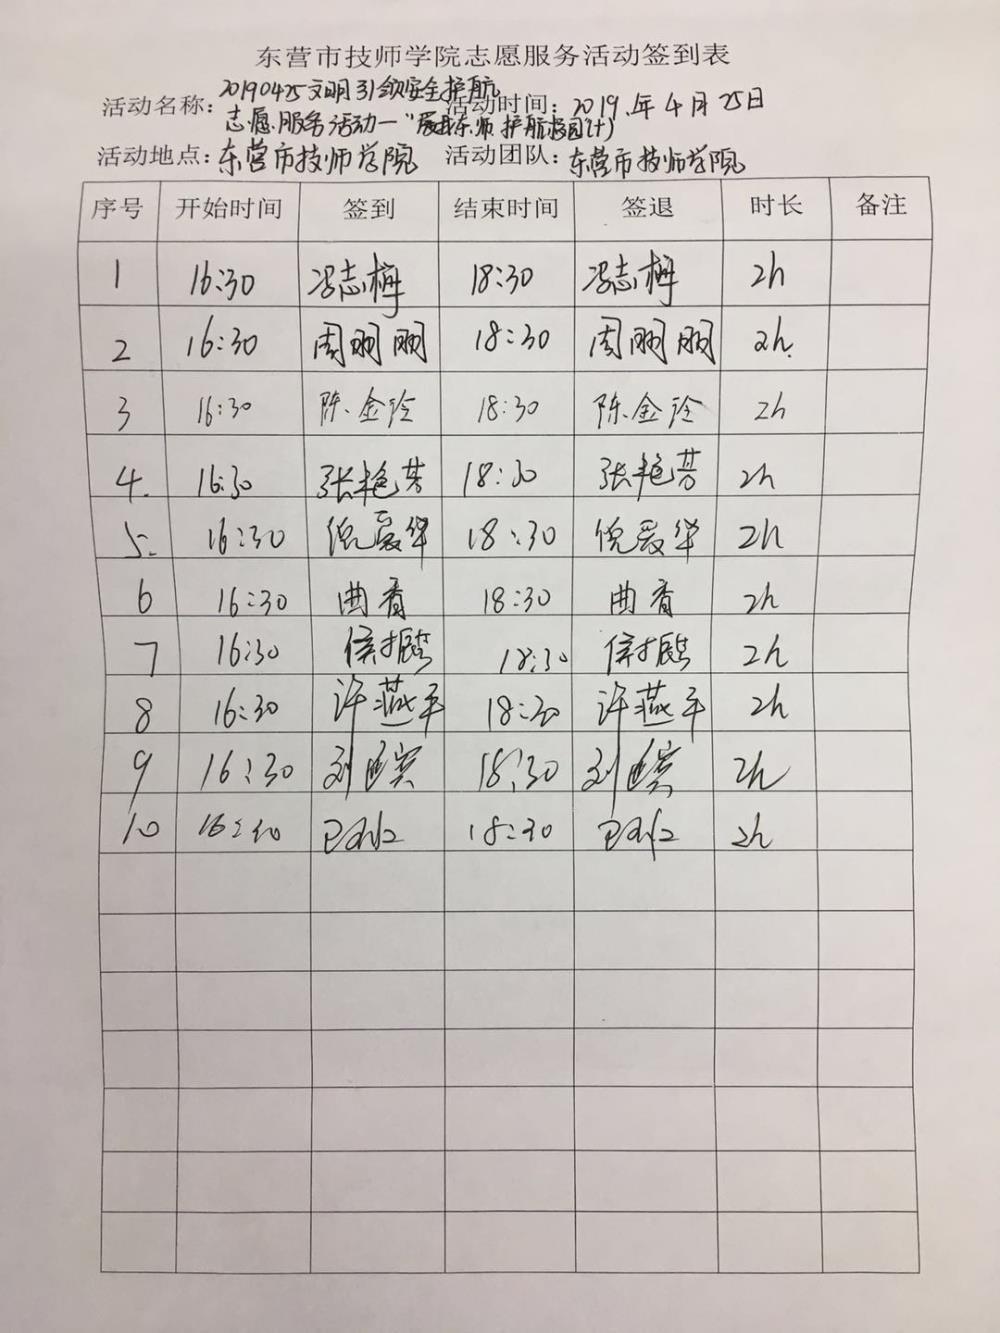 东营市技师学院志愿服务活动签到表
活动名称：20190425文明引领安全护航 活动时间：2019.年4月25日
志愿服务活动一“ 东师 护航校园(十)
活动地点：东营市技师学院 活动团队：东营市技师学院
序号 开始时间 签到 结束时间 签退 时长 备注
1 16:30 冯志梅 18:30 冯志梅 2h
2 16:30 周丽丽 18:30 周丽丽 2h.
3 16:30 陈金玲 18:30 陈金玲 2h
4. 16:30 张艳芳 18:30 张艳芳 2h
5. 16:30 倪爱华 18:30 倪爱华 2h
6 16:30 曲香 18:30 曲香 2h
7 16:30 侯振 18:30 侯振 2h
8 16:30 许燕平 18:30 许燕平 2h
9 16:30 刘 宾 18:30 刘 宾 2h
10 16:30 18:30 2h